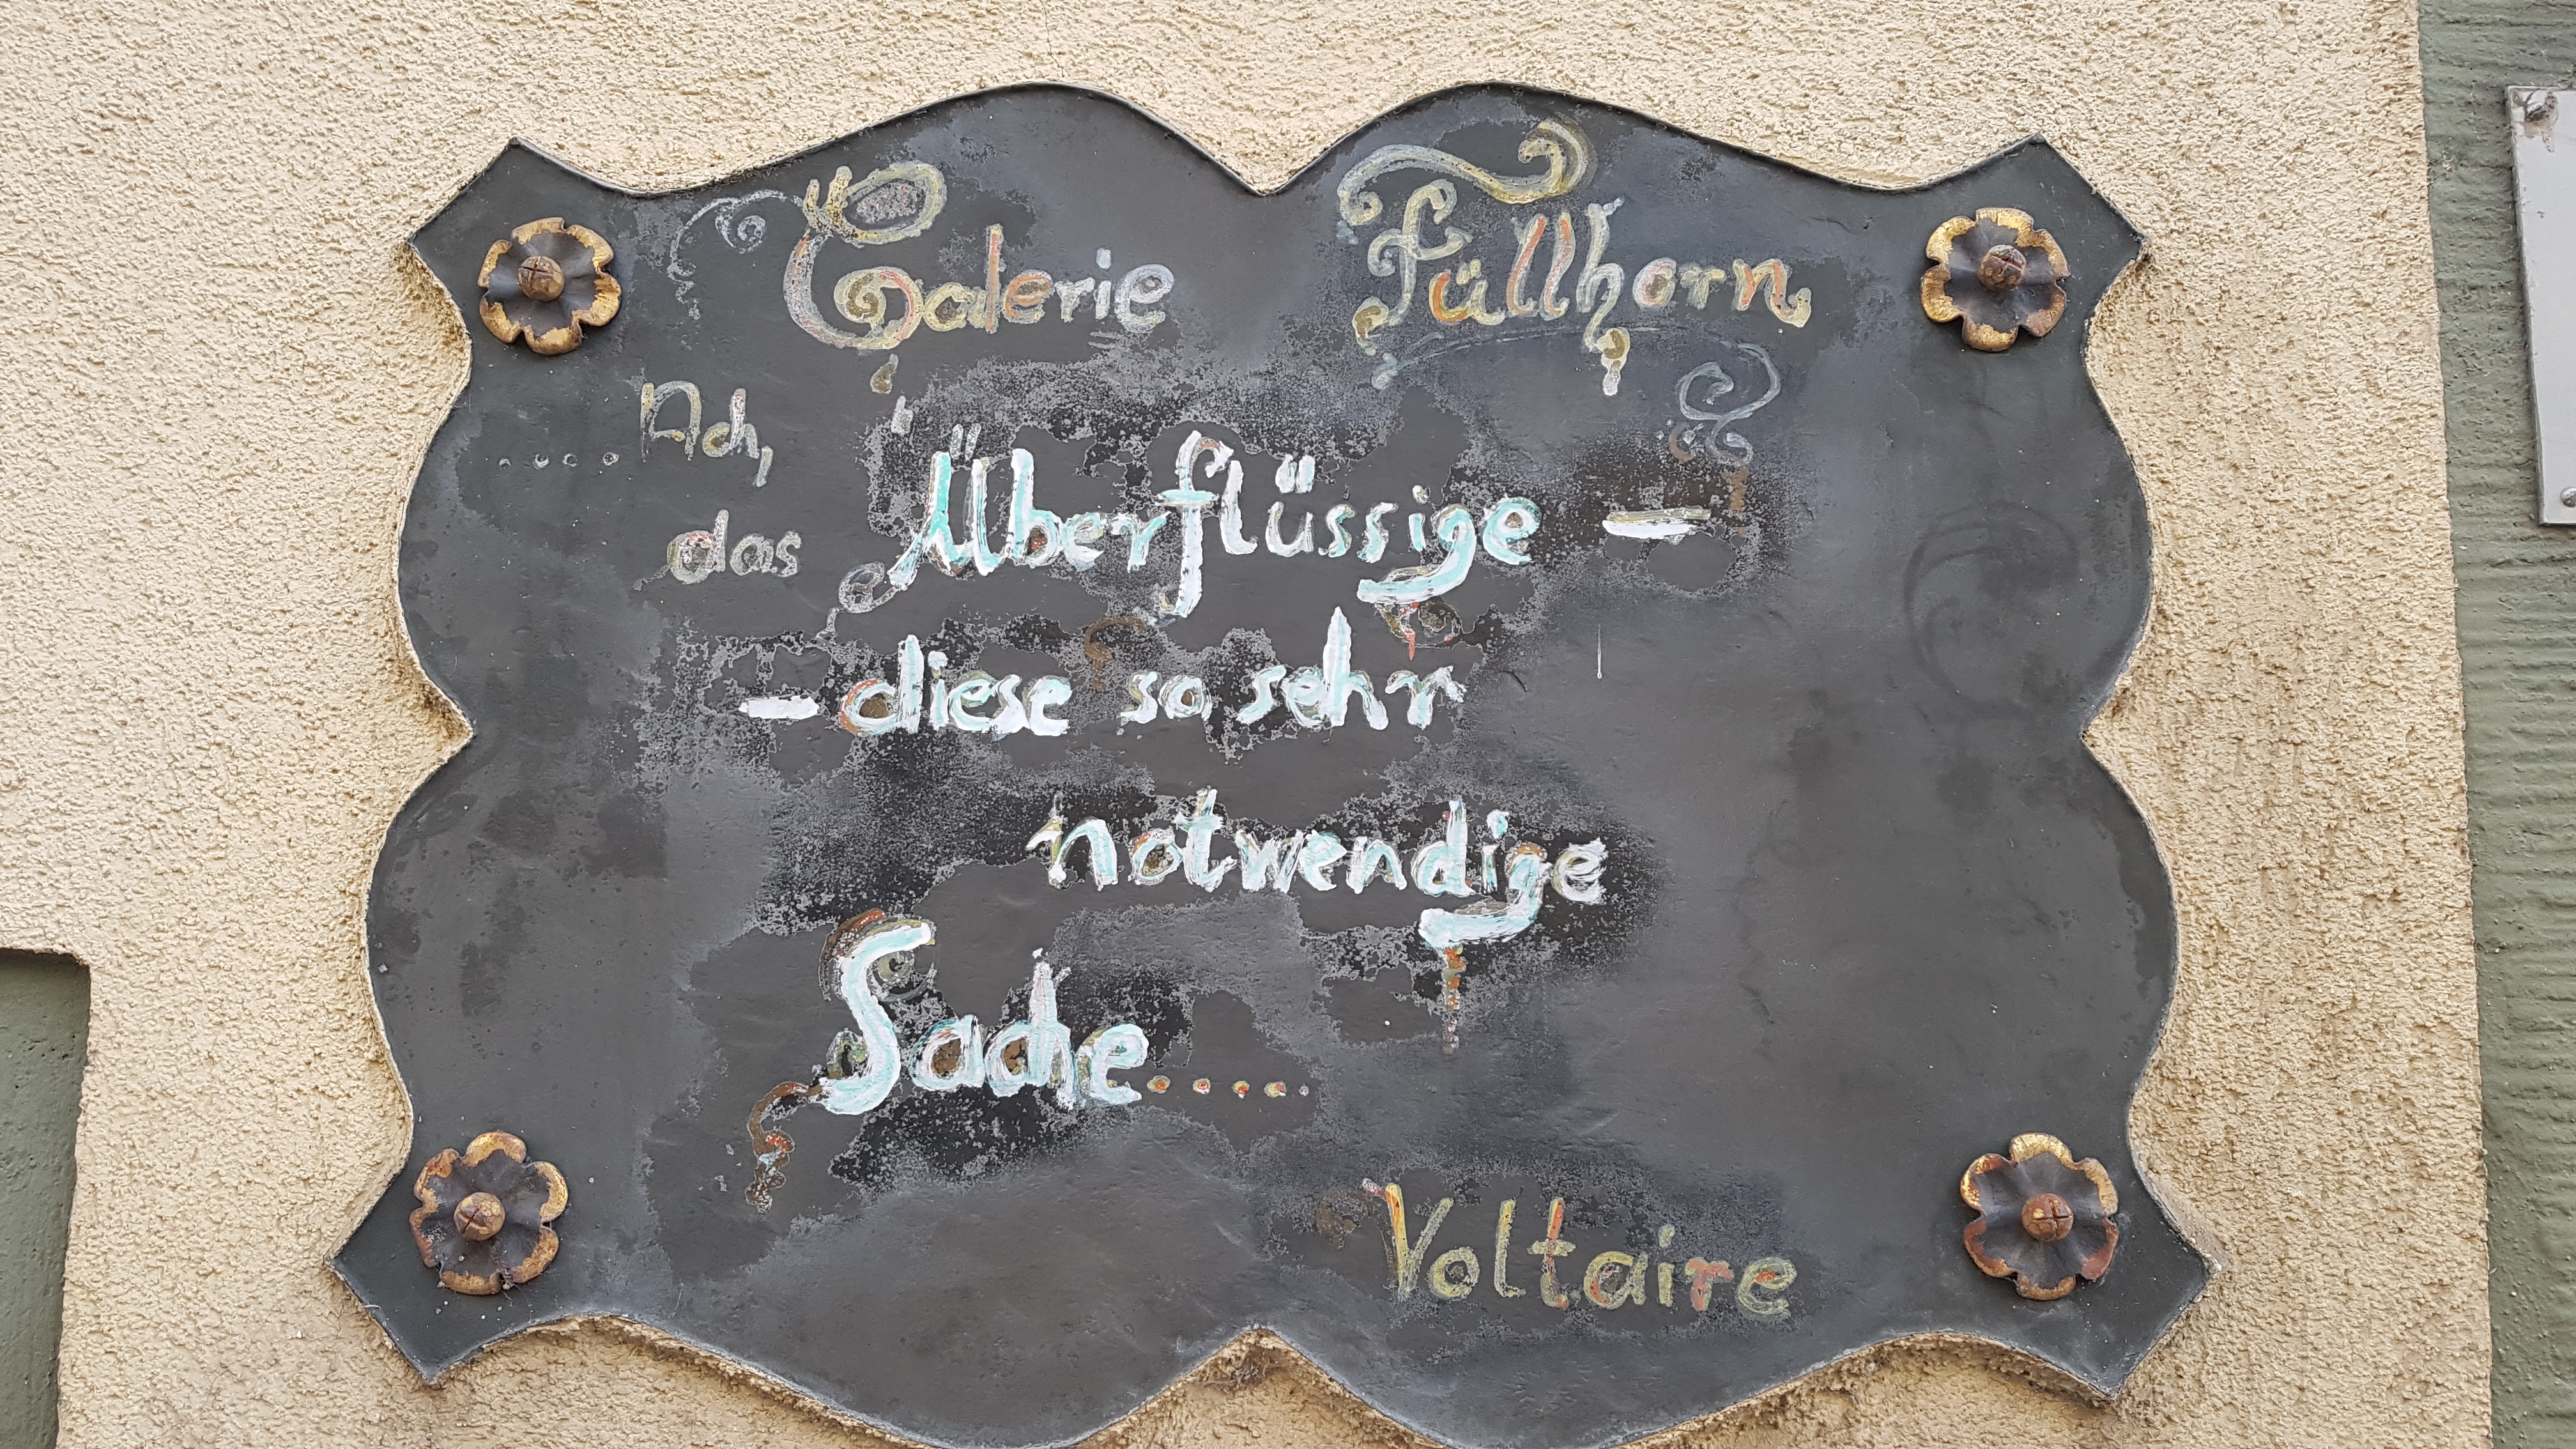 Galerie Füllhorn
.....Ach,
das Überflüssige —
— diese so sehr
notwendige
Sache.....
Voltaire